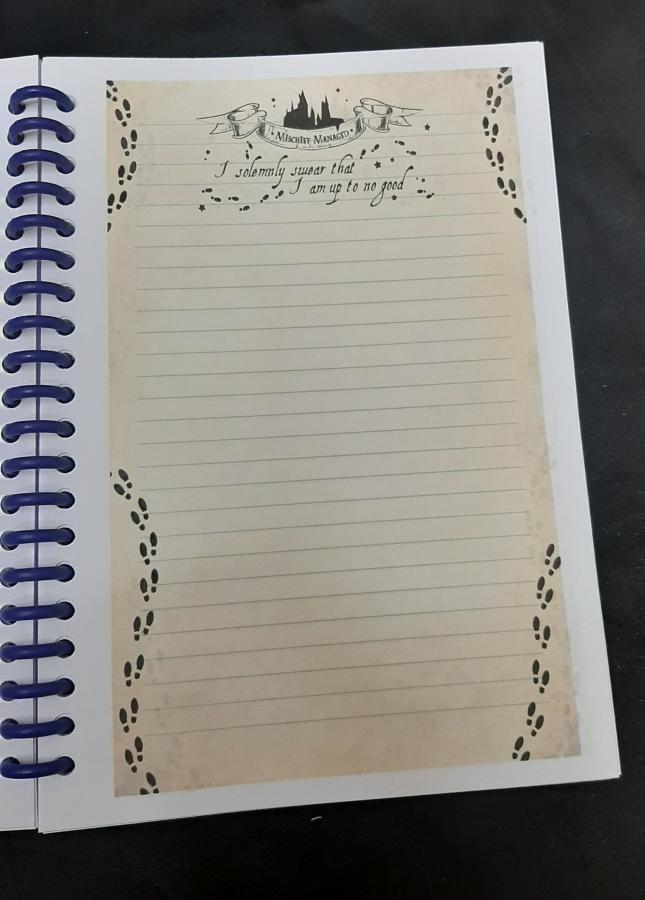 Mischief Managed
I solemnly swear that
I am up to no good